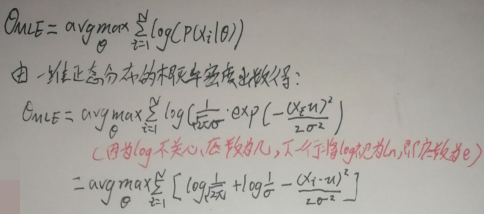 θMLE = argmax_θ Σ_{i=1}^{N} log(P(xi|θ))
由一维正态分布的概率密度函数得：
θMLE = argmax_θ Σ_{i=1}^{N} log(1/(√2π σ) · exp(-(xi-u)²/2σ²)
(因为log不关心底数为几，下一行将log视为ln，即底数为e)
= argmax_θ Σ_{i=1}^{N} [log 1/√2π + log 1/σ - (xi-u)²/2σ²]